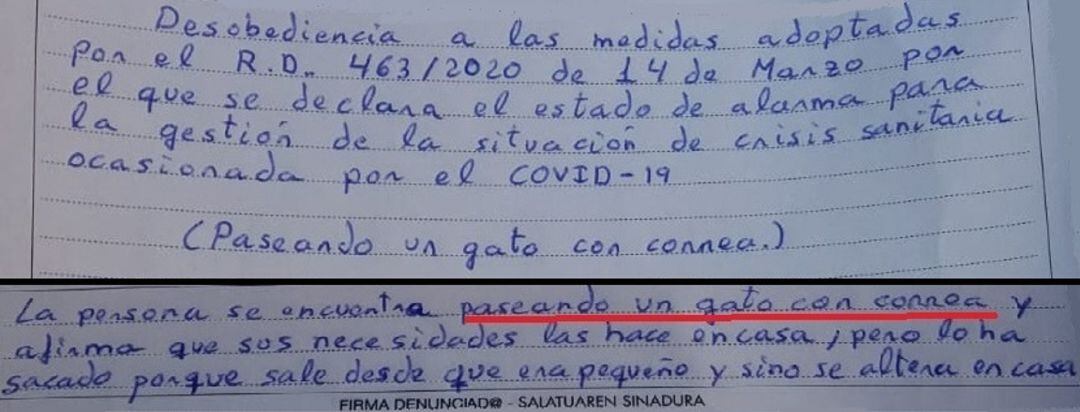 Desobediencia a las medidas adoptadas
por el R.D. 463/2020 de 14 de Marzo por
el que se declara el estado de alarma para
la gestión de la situación de crisis sanitaria
ocasionada por el COVID-19
(Paseando un gato con correa.)
La persona se encuentra paseando un gato con correa y
afirma que sus necesidades las hace en casa, pero lo ha
sacado porque sale desde que era pequeño y sino se altera en casa
FIRMA DENUNCIAD@ - SALATUAREN SINADURA